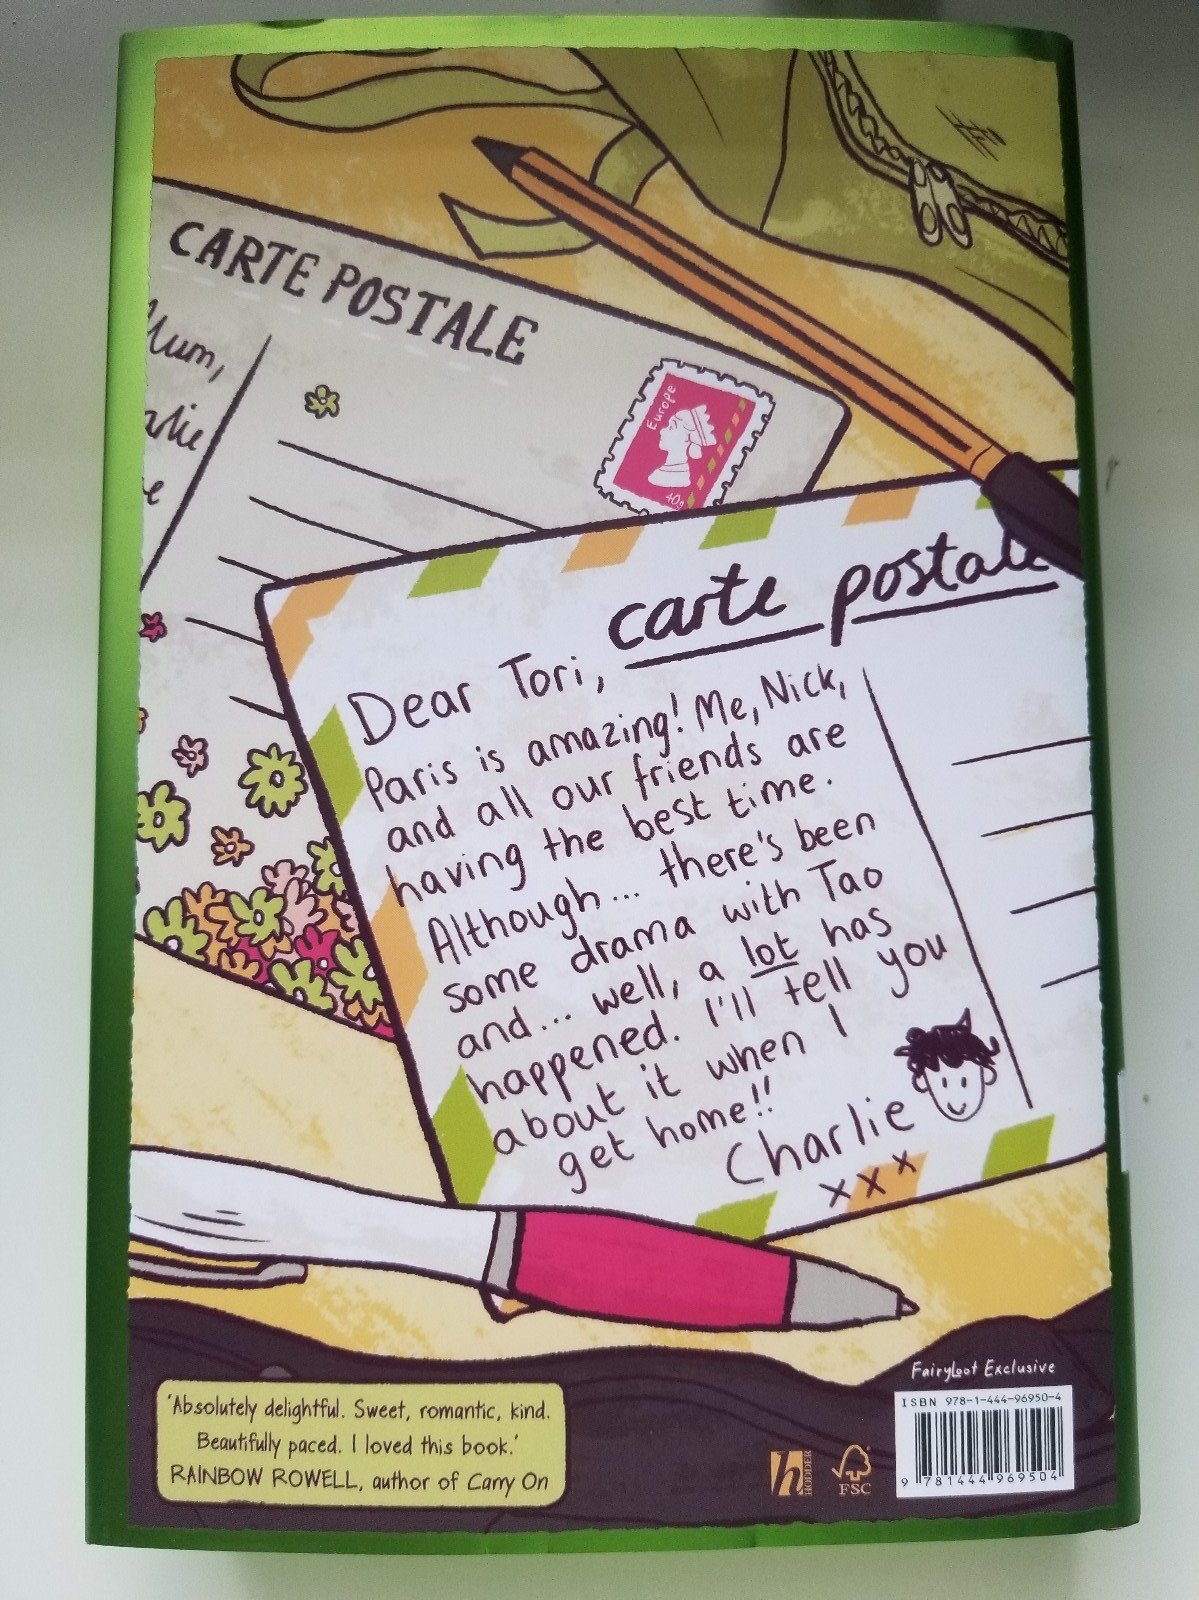 CARTE POSTALE
Mum,
Europe
40g
carte postale
Dear Tori,
Paris is amazing! Me, Nick,
and all our friends are
having the best time.
Although... there's been
some drama with Tao
and... well, a lot has
happened. I'll tell you
about it when I
get home!!
Charlie
x x x
FairyLoot Exclusive
ISBN 978-1-444-96950-4
9 781444 969504
'Absolutely delightful. Sweet, romantic, kind.
Beautifully paced. I loved this book.'
RAINBOW ROWELL, author of Carry On
h
HODDER
FSC